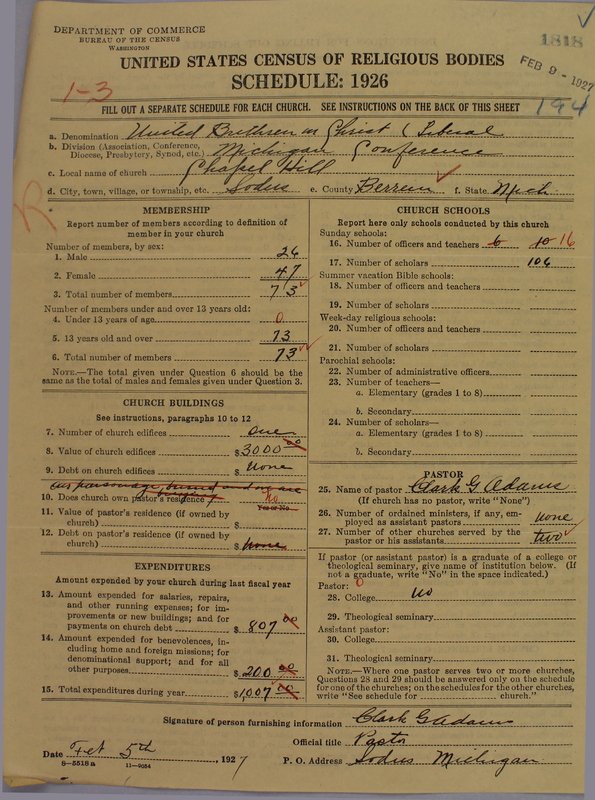 DEPARTMENT OF COMMERCE
BUREAU OF THE CENSUS
WASHINGTON
1818
FEB 9 - 1927
UNITED STATES CENSUS OF RELIGIOUS BODIES
SCHEDULE: 1926
1-3
194
FILL OUT A SEPARATE SCHEDULE FOR EACH CHURCH. SEE INSTRUCTIONS ON THE BACK OF THIS SHEET
a. Denomination United Brethren in Christ (Liberal
b. Division (Association, Conference, Diocese, Presbytery, Synod, etc.) Michigan Conference
c. Local name of church Chapel Hill
d. City, town, village, or township, etc. Sodus e. County Berrien f. State Mich
R
MEMBERSHIP
Report number of members according to definition of
member in your church
Number of members, by sex:
1. Male 26
2. Female 47
3. Total number of members 73
Number of members under and over 13 years old:
4. Under 13 years of age 0
5. 13 years old and over 73
6. Total number of members 73
NOTE.—The total given under Question 6 should be
same as the total of males and females given under Question 3.
CHURCH BUILDINGS
See instructions, paragraphs 10 to 12
7. Number of church edifices one
8. Value of church edifices $3000 00
9. Debt on church edifices $ None
our parsonage burned and we are
10. Does church own pastor's residence? No
Yes or No
11. Value of pastor's residence (if owned by
church) $
12. Debt on pastor's residence (if owned by
church) $ None
EXPENDITURES
Amount expended by your church during last fiscal year
13. Amount expended for salaries, repairs,
and other running expenses; for im-
provements or new buildings; and for
payments on church debt $ 807 00
14. Amount expended for benevolences, in-
cluding home and foreign missions; for
denominational support; and for all
other purposes $ 200 00
15. Total expenditures during year $1,007 00
CHURCH SCHOOLS
Report here only schools conducted by this church
Sunday schools:
16. Number of officers and teachers 6 10 16
17. Number of scholars 106
Summer vacation Bible schools:
18. Number of officers and teachers
19. Number of scholars
Week-day religious schools:
20. Number of officers and teachers
21. Number of scholars
Parochial schools:
22. Number of administrative officers
23. Number of teachers—
a. Elementary (grades 1 to 8)
b. Secondary
24. Number of scholars—
a. Elementary (grades 1 to 8)
b. Secondary
PASTOR
25. Name of pastor Clark G Adams
(If church has no pastor, write "None")
26. Number of ordained ministers, if any, em-
ployed as assistant pastors none
27. Number of other churches served by the
pastor or his assistants two
If pastor (or assistant pastor) is a graduate of a college or
theological seminary, give name of institution below. (If
not a graduate, write "No" in the space indicated.)
Pastor: 0
28. College No
29. Theological seminary
Assistant pastor:
30. College
31. Theological seminary
NOTE.—Where one pastor serves two or more churches,
Questions 28 and 29 should be answered only on the schedule
for one of the churches; on the schedules for the other churches,
write "See schedule for church."
Signature of person furnishing information Clark G Adams
Official title Pastor
Date Feb 5th, 1927 P. O. Address Sodus Michigan
8-5518a 11-9054